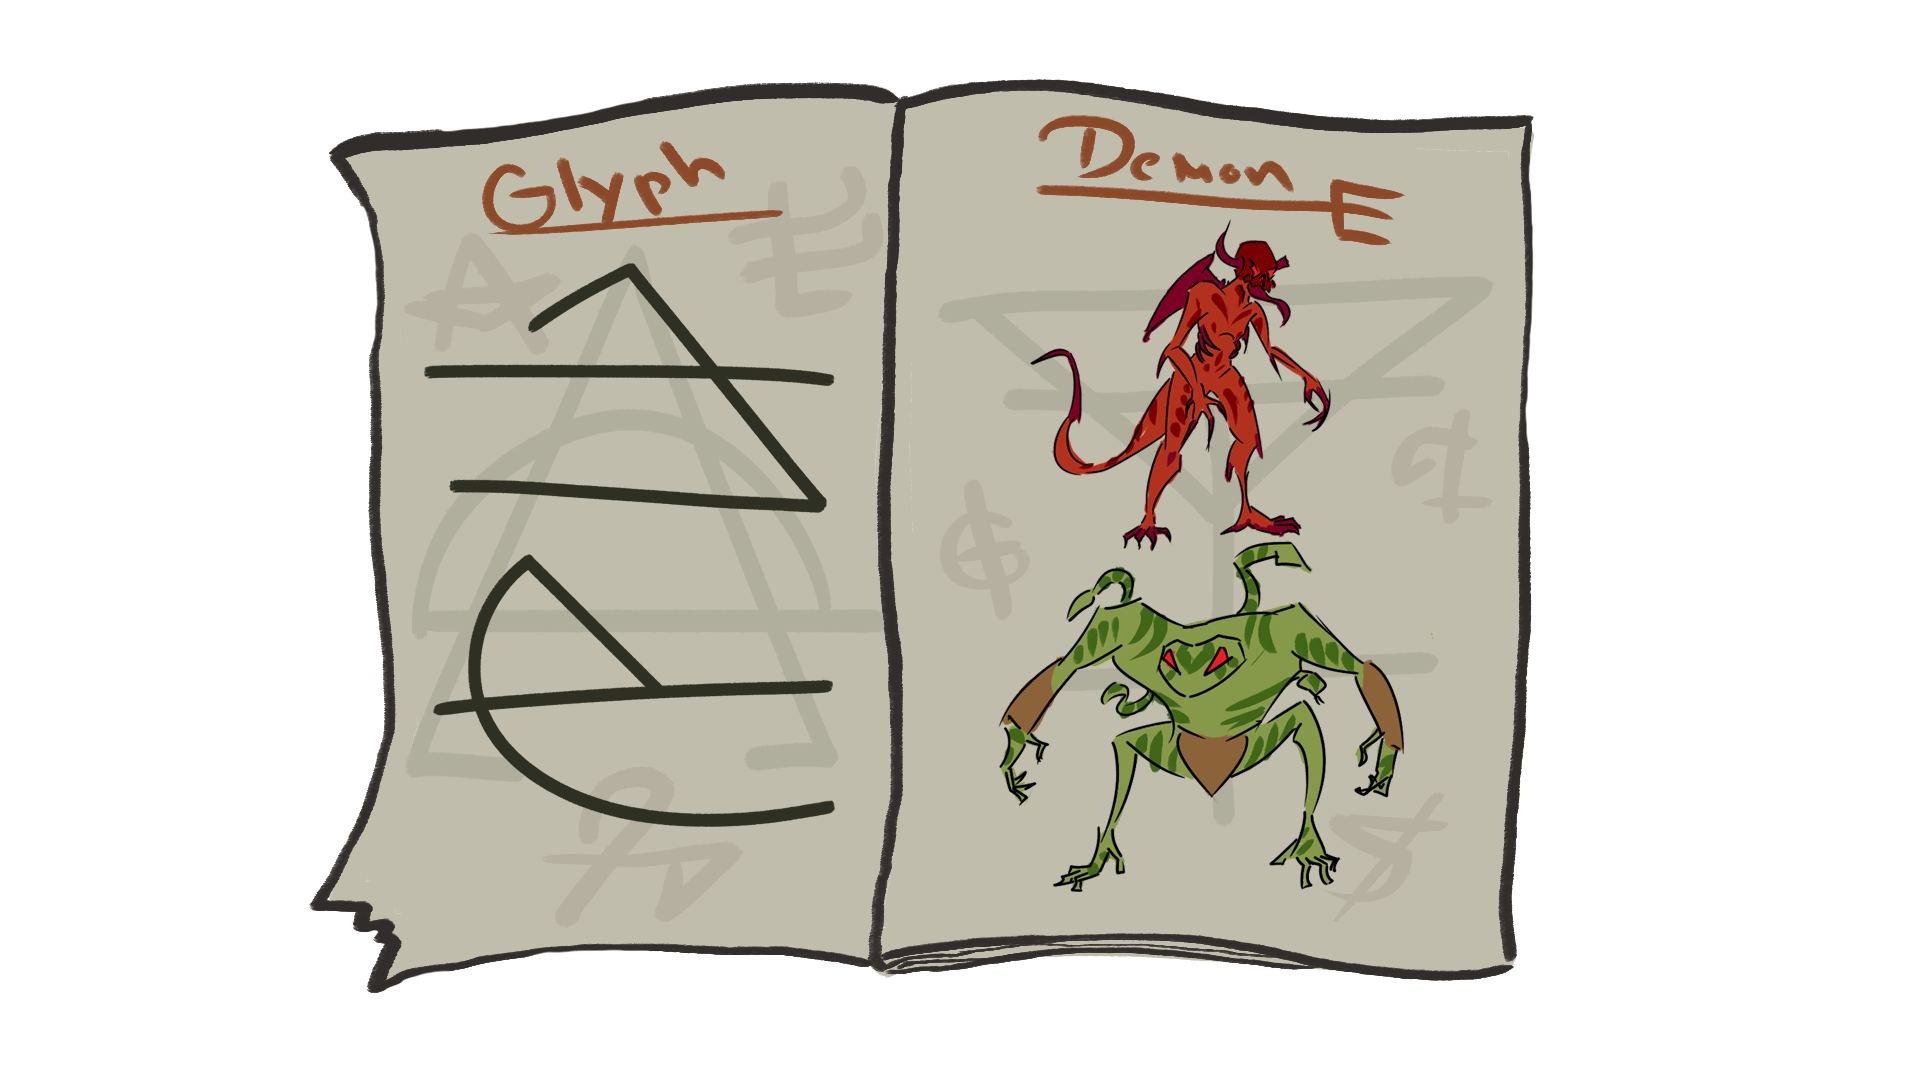 Glyph
Demon